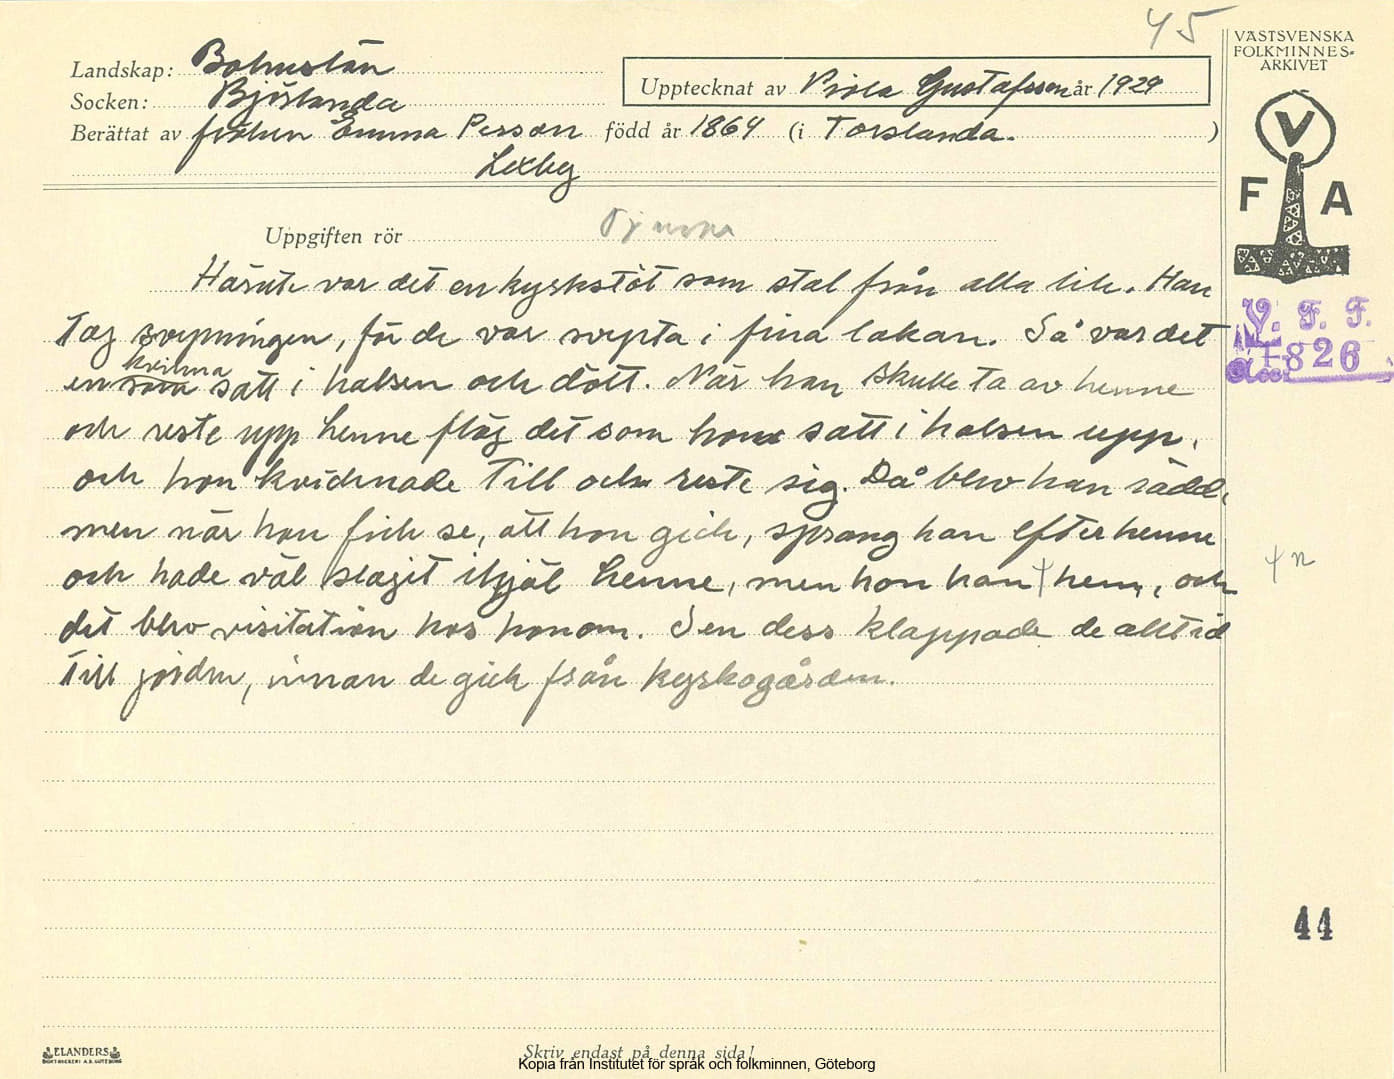 45
VÄSTSVENSKA
FOLKMINNES-
ARKIVET
Landskap: Bohuslän
Socken: Björlanda
Upptecknat av Viola Gustafsson år 1929
Berättat av fröken Emma Persson född år 1864 (i Torslanda. )
Lexby
V
F A
Uppgiften rör
Härute var det en kyrkstöt som stal från alla lik. Han
tog svepningen, för de var svepta i fina lakan. Så var det
kvinna
en som satt i halsen och dött. När han skulle ta av henne
och reste upp henne flög det som hon satt i halsen upp,
och hon kvicknade till och reste sig. Då blev han rädd,
men när han fick se, att hon gick, sprang han efter henne
och hade väl slagit ihjäl henne, men hon han hem, och
det blev visitation hos honom. Sen dess klappade de alltid
till jorden, innan de gick från kyrkogården.
V. F. F.
1826
n
44
ELANDERS
BOKTRYCKERI A.B. GÖTEBORG
Skriv endast på denna sida!
Kopia från Institutet för språk och folkminnen, Göteborg